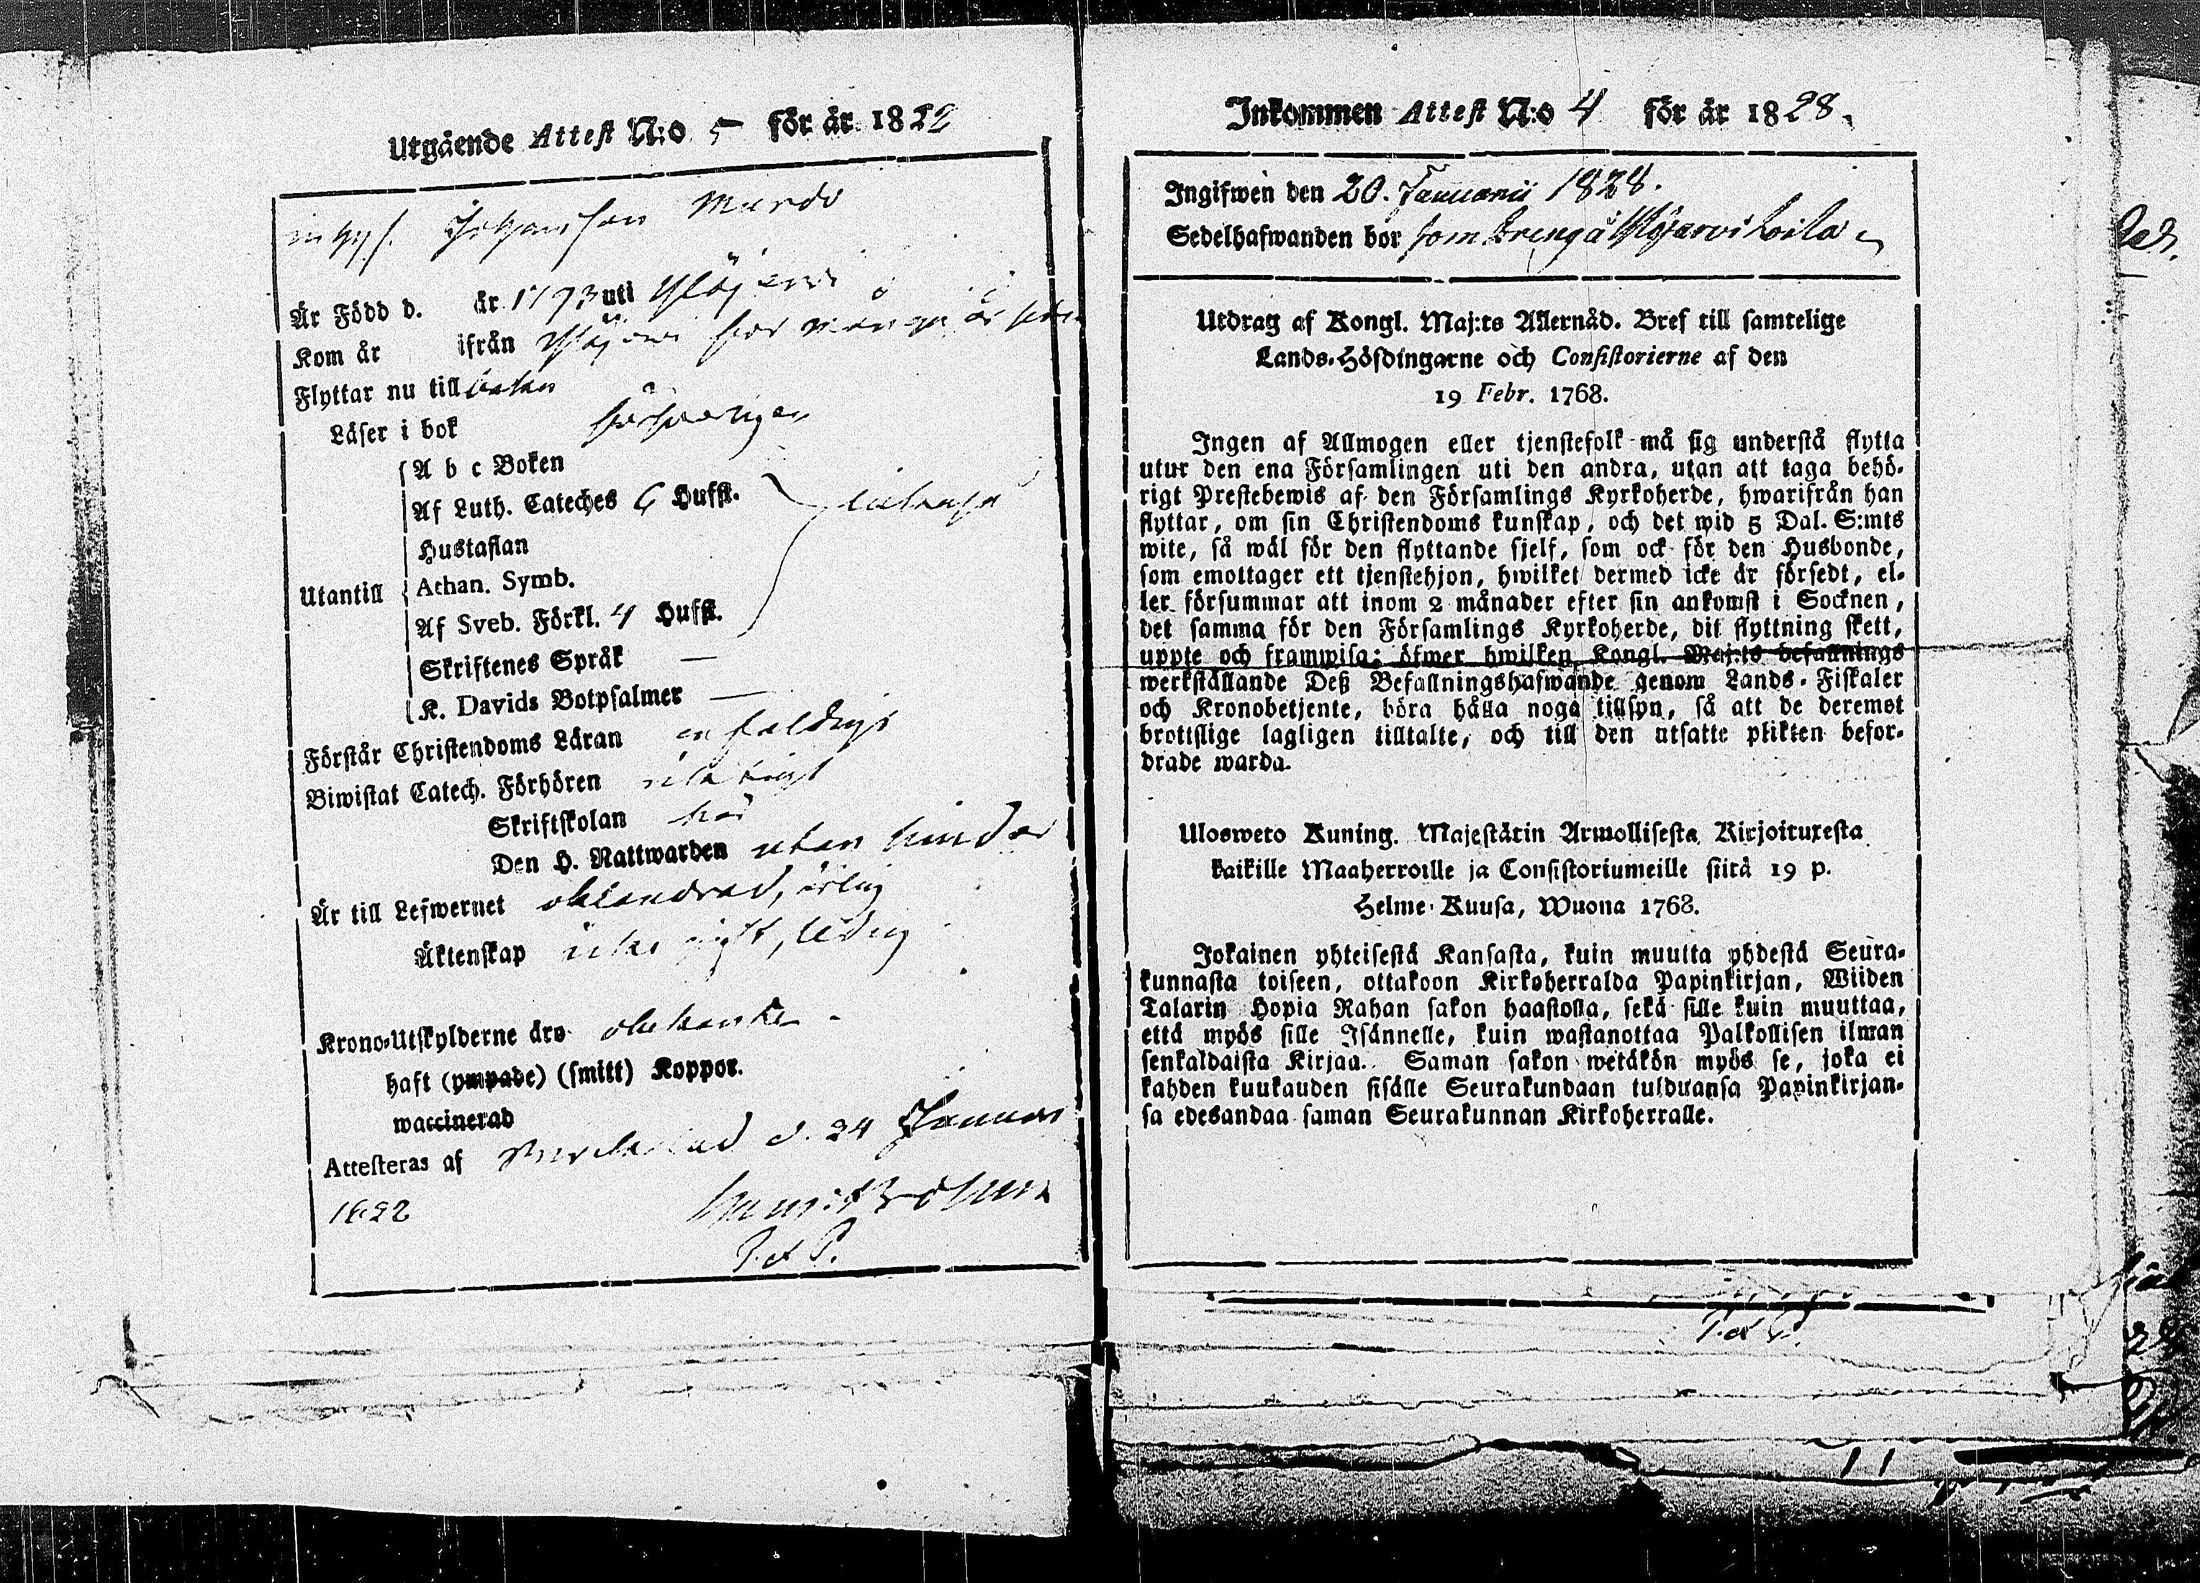 Utgående Attest N:o 5 för år 1822
Johansson
Är Född d. år 1793 uti Ylöjervi
Kom år ifrån Ylöjervi för många år sedan
Flyttar nu till
Läser i bok försvarligen
A b c Boken
Af Luth. Cateches 6 Hufst.
Hustaflan
Utantill
Athan. Symb.
Af Sveb. Förkl. 4 Hufst.
Skriftenes Språk —
K. Davids Botpsalmer —
Förstår Christendoms Läran enfaldigt
Biwistat Catech. Förhören
Skriftskolan här
Den H. Nattwarden utan hinder
Är till Lefwernet oklandrad, ärlig
Äktenskap icke gift, ledig
Krono-Utskylderne äro obekanta
haft (ympade) (smitt) Koppor.
waccinerad
Attesteras af d. 24 Januari
1822
P. et P.
Inkommen Attest N:o 4 för år 1828.
Ingifwen den 20. Januarii 1828.
Sedelhafwanden bor som Dreng å Ylöjärvi
Utdrag af Kongl. Maj:ts Allernåd. Bref till samtelige
Lands-Höfdingarne och Consistorierne af den
19 Febr. 1768.
Ingen af Allmogen eller tjenstefolk må sig understå flytta
utur den ena Församlingen uti den andra, utan att taga behö-
rigt Prestebewis af den Församlings Kyrkoherde, hwarifrån han
flyttar, om sin Christendoms kunskap, och det wid 5 Dal. S:mts
wite, så wäl för den flyttande sjelf, som ock för den Husbonde,
som emottager ett tjenstehjon, hwilket dermed icke är försedt, el-
ler försummar att inom 2 månader efter sin ankomst i Socknen,
det samma för den Församlings Kyrkoherde, dit flyttning skett,
uppte och framwisa; öfwer hwilken Kongl. Maj:ts befallnings
werkställande Deß Befallningshafwande genom Lands-Fiskaler
och Kronobetjente, böra hålla noga tillsyn, så att de deremot
brottslige lagligen tilltalte, och till den utsatte plikten befor-
drade warda.
Ulosweto Kuning. Majestätin Armollisesta Kirjoituxesta
kaikille Maaherroille ja Consistoriumeille siitä 19 p.
Helme-Kuusa, Wuona 1768.
Jokainen yhteisestä Kansasta, kuin muutta yhdestä Seura-
kunnasta toiseen, ottakoon Kirkoherralda Papinkirjan, Wiiden
Talarin Hopia Rahan sakon haastolla, sekä sille kuin muuttaa,
että myös sille Isännelle, kuin wastanottaa Palkollisen ilman
senkaldaista Kirjaa. Saman sakon wetäkön myös se, joka ei
kahden kuukauden sisälle Seurakundaan tulduansa Papinkirjan-
sa edesandaa saman Seurakunnan Kirkoherralle.
P. et P.